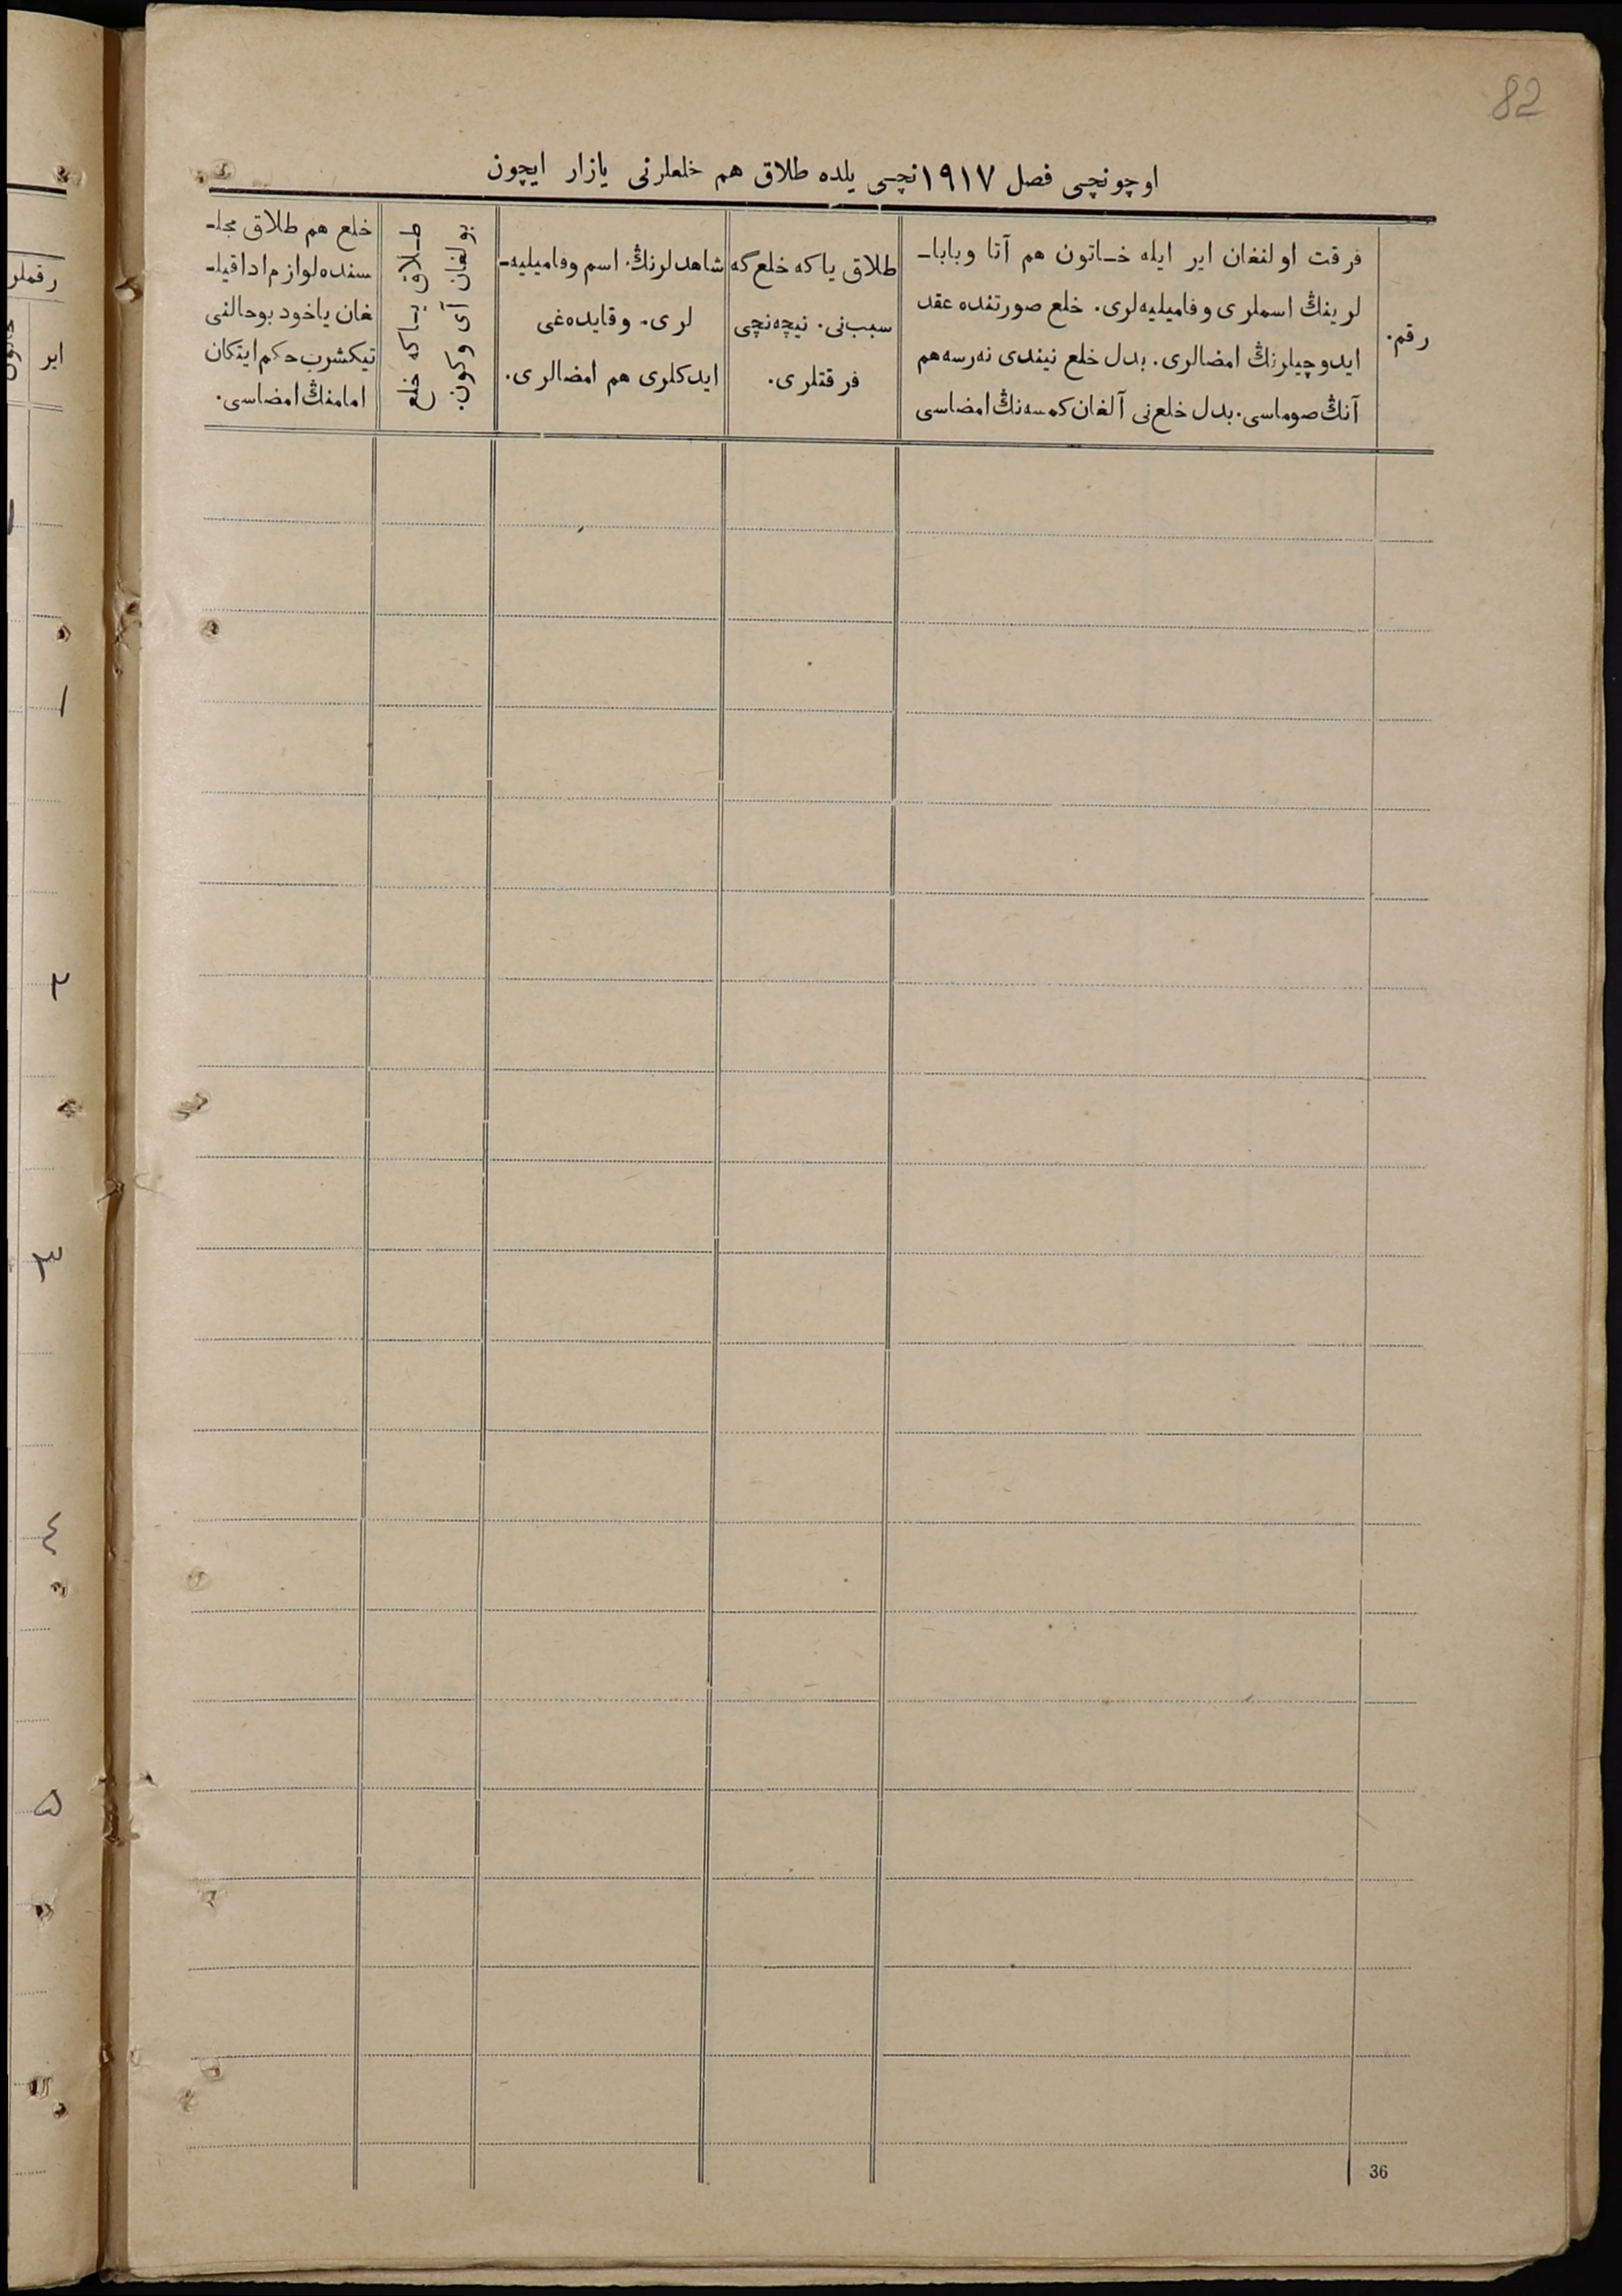 82
اوچونچی فصل ١٩١٧نچی یلده طلاق هم خلعلرنی یازار ایچون
رقم.
فرقت اولنغان ایر ایله خاتون هم آتا وبابا-
لرینڭ اسملری وفامیلیه‌لری. خلع صورتنده عقد
ایدوچیلرنڭ امضالری. بدل خلع نیندی نه‌رسه هم
آنڭ صوماسی. بدل خلع‌نی آلغان کمسه‌نڭ امضاسی
طلاق یاکه خلع‌گه
سبب‌نی. نیچه‌نچی
فرقتلری.
شاهدلرنڭ اسم وفامیلیه-
لری. وقایده‌غی
ایدکلری هم امضالری.
طلاق یاکه خلع
بولغان آی وکون.
خلع هم طلاق مجلـ-
سنده‌لوازم ادا قیلـ-
غان یاخود بوحالنی
تیکشرب حکم ایتکان
امامنڭ امضاسی.
رقملر
ایر
خاتون
١
٢
٣
٤
۵
36